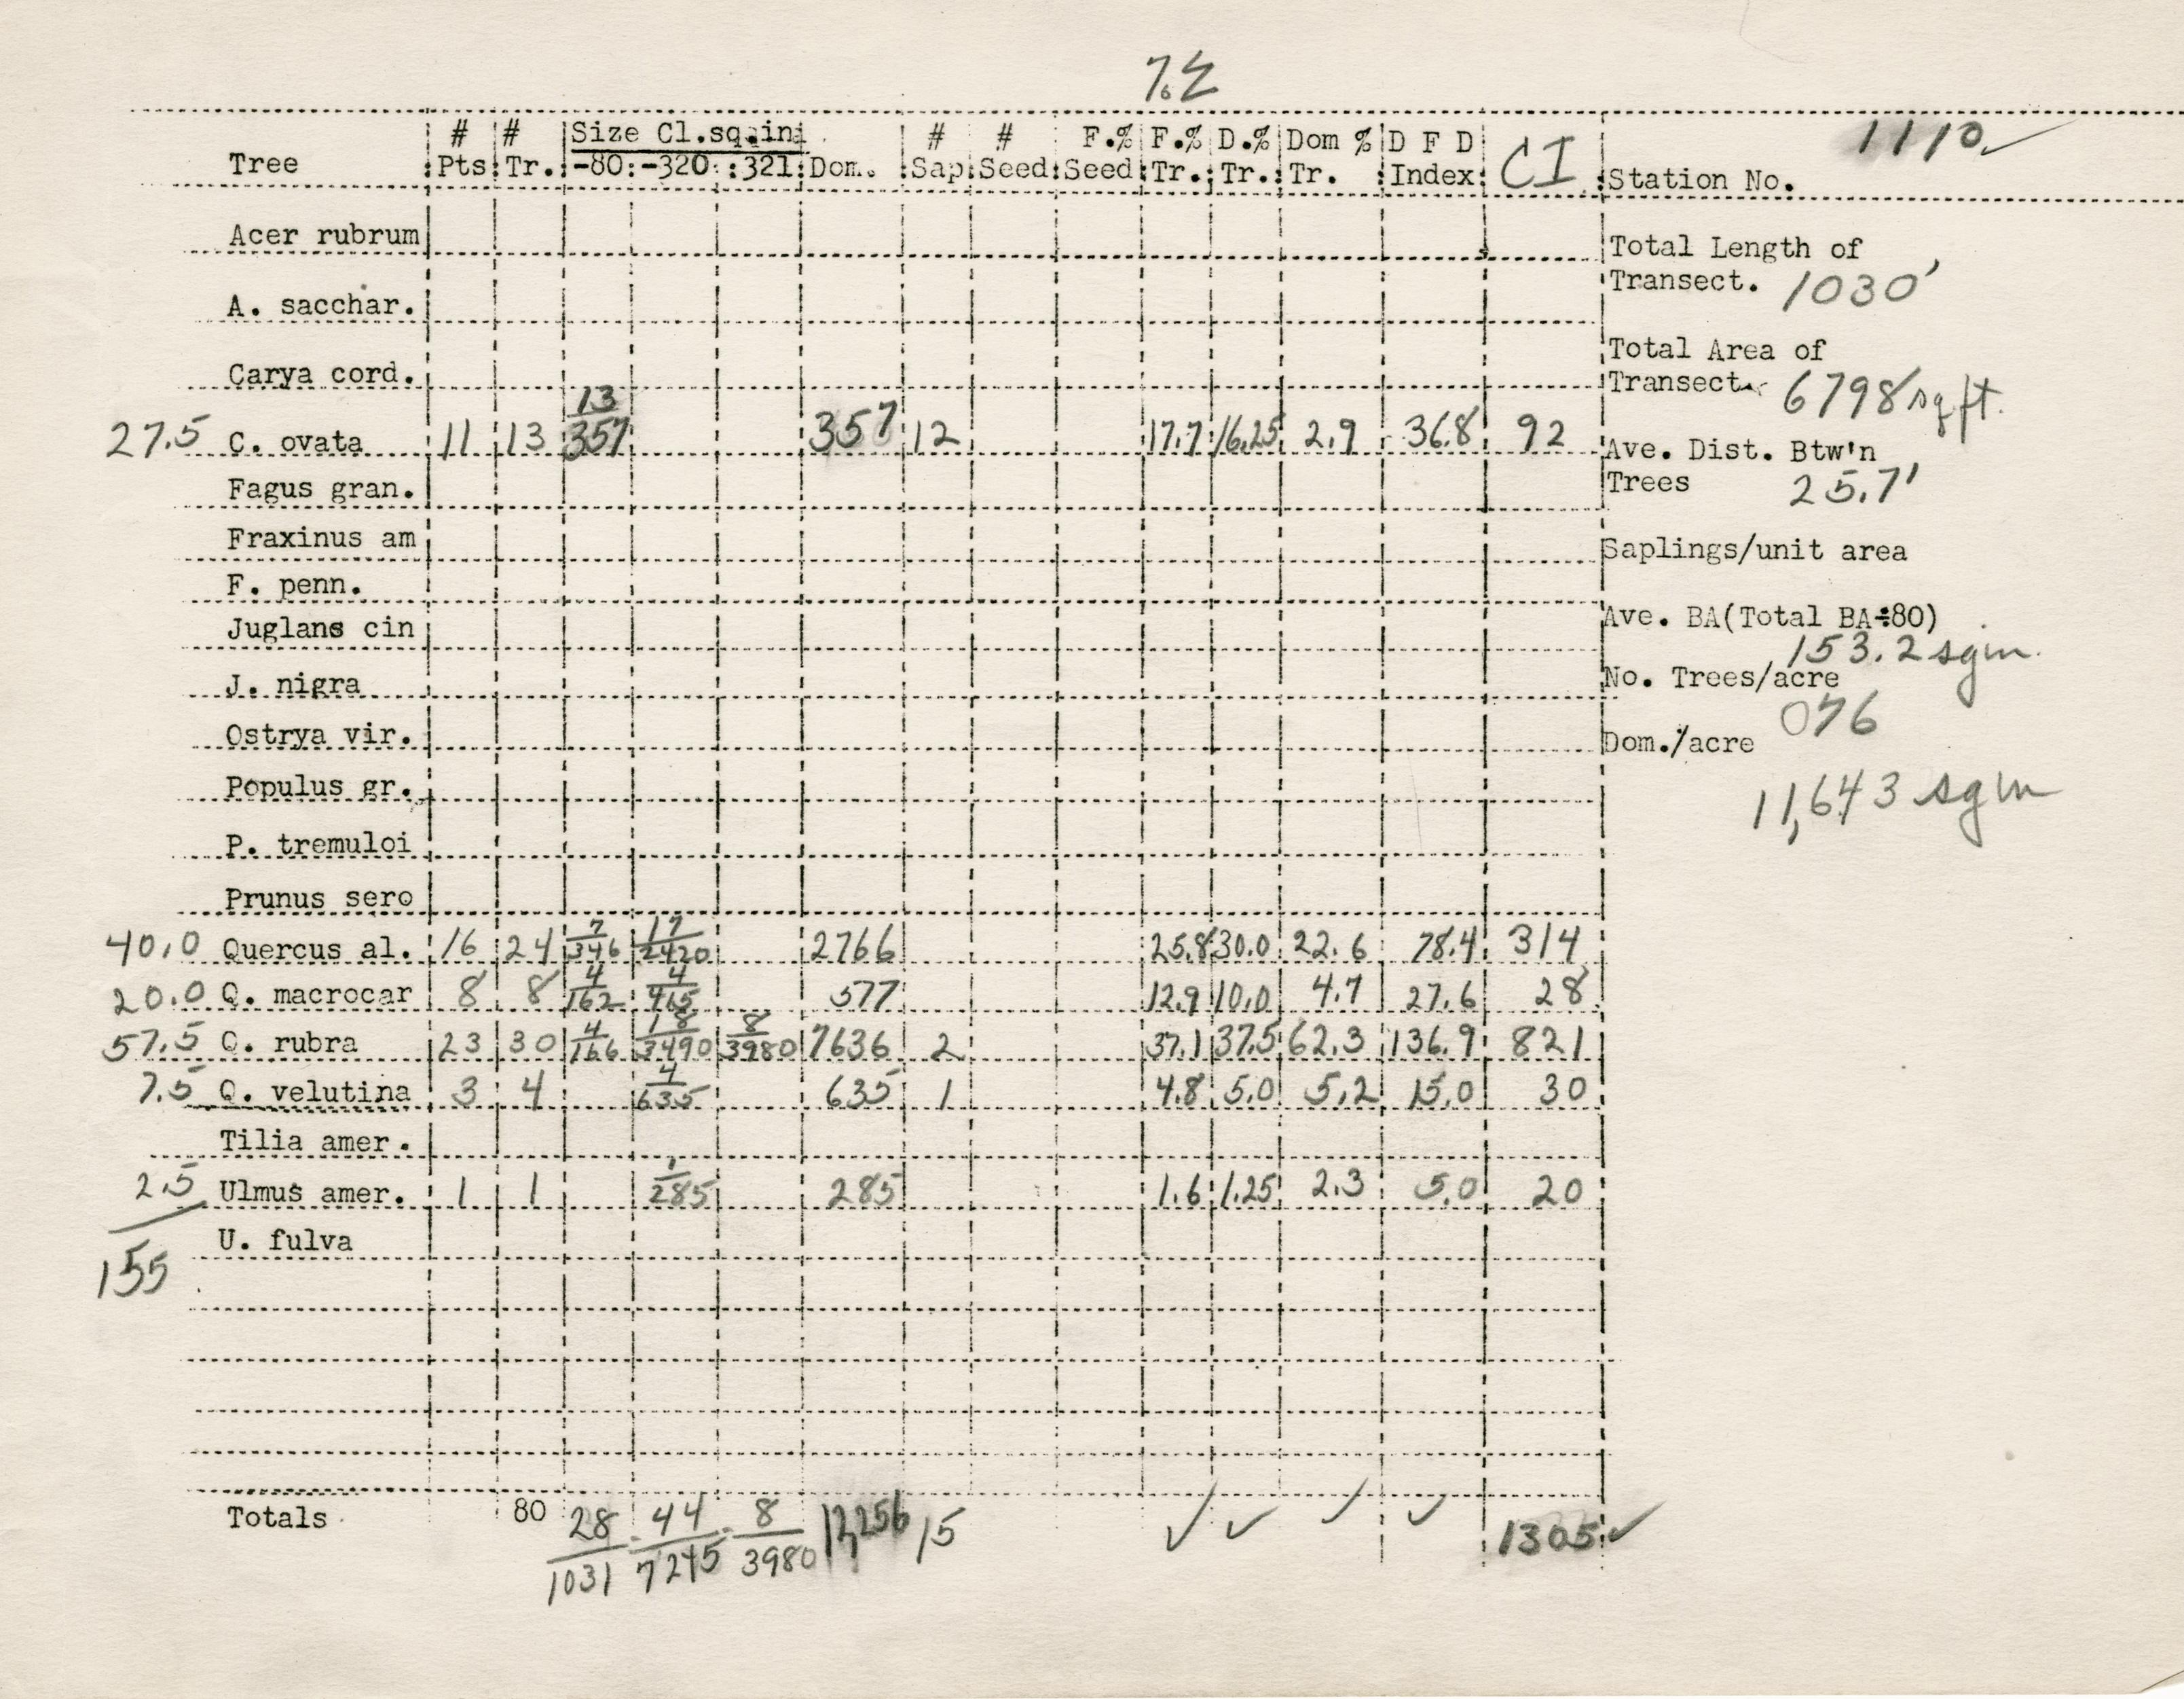 7.Σ
# # Size Cl.sq.in. # # F.% F.% D.% Dom % D F D
Tree Pts Tr. -80 -320 321 Dom. Sap Seed Seed Tr. Tr. Tr. Index CI Station No. 1110 ✓
Acer rubrum
Total Length of
Transect. 1030'
A. sacchar.
Total Area of
Transect 6798 sq ft.
Carya cord.
13
27.5 C. ovata 11 13 357 357 12 17.7 16.25 2.9 36.8 92
Ave. Dist. Btw'n
Trees 25.7'
Fagus gran.
Fraxinus am
Saplings/unit area
F. penn.
Juglans cin
Ave. BA(Total BA÷80)
153.2 sqin.
J. nigra
No. Trees/acre
076
Ostrya vir.
Dom./acre
11,643 sqin
Populus gr.
P. tremuloi
Prunus sero
7 17
40.0 Quercus al. 16 24 346 2420 2766 25.8 30.0 22.6 78.4 314
4 4
20.0 Q. macrocar 8 8 162 415 577 12.9 10.0 4.7 27.6 28
4 18 8
57.5 Q. rubra 23 30 166 3490 3980 7636 2 37.1 37.5 62.3 136.9 821
4
7.5 Q. velutina 3 4 635 635 1 4.8 5.0 5.2 15.0 30
Tilia amer.
1
2.5 Ulmus amer. 1 1 285 285 1.6 1.25 2.3 5.0 20
U. fulva
155
Totals 80 28 44 8 12,256 15 ✓ ✓ ✓ ✓ 1305 ✓
1031 7245 3980